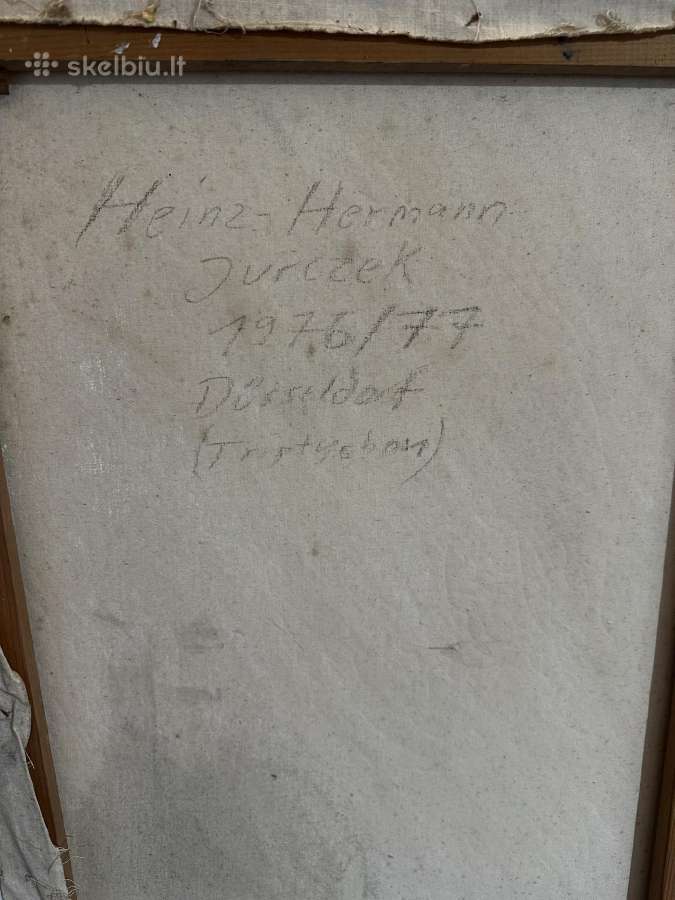 skelbiu.lt
Heinz-Hermann
Jurczek
1976/77
Düsseldorf
(Triptychon)